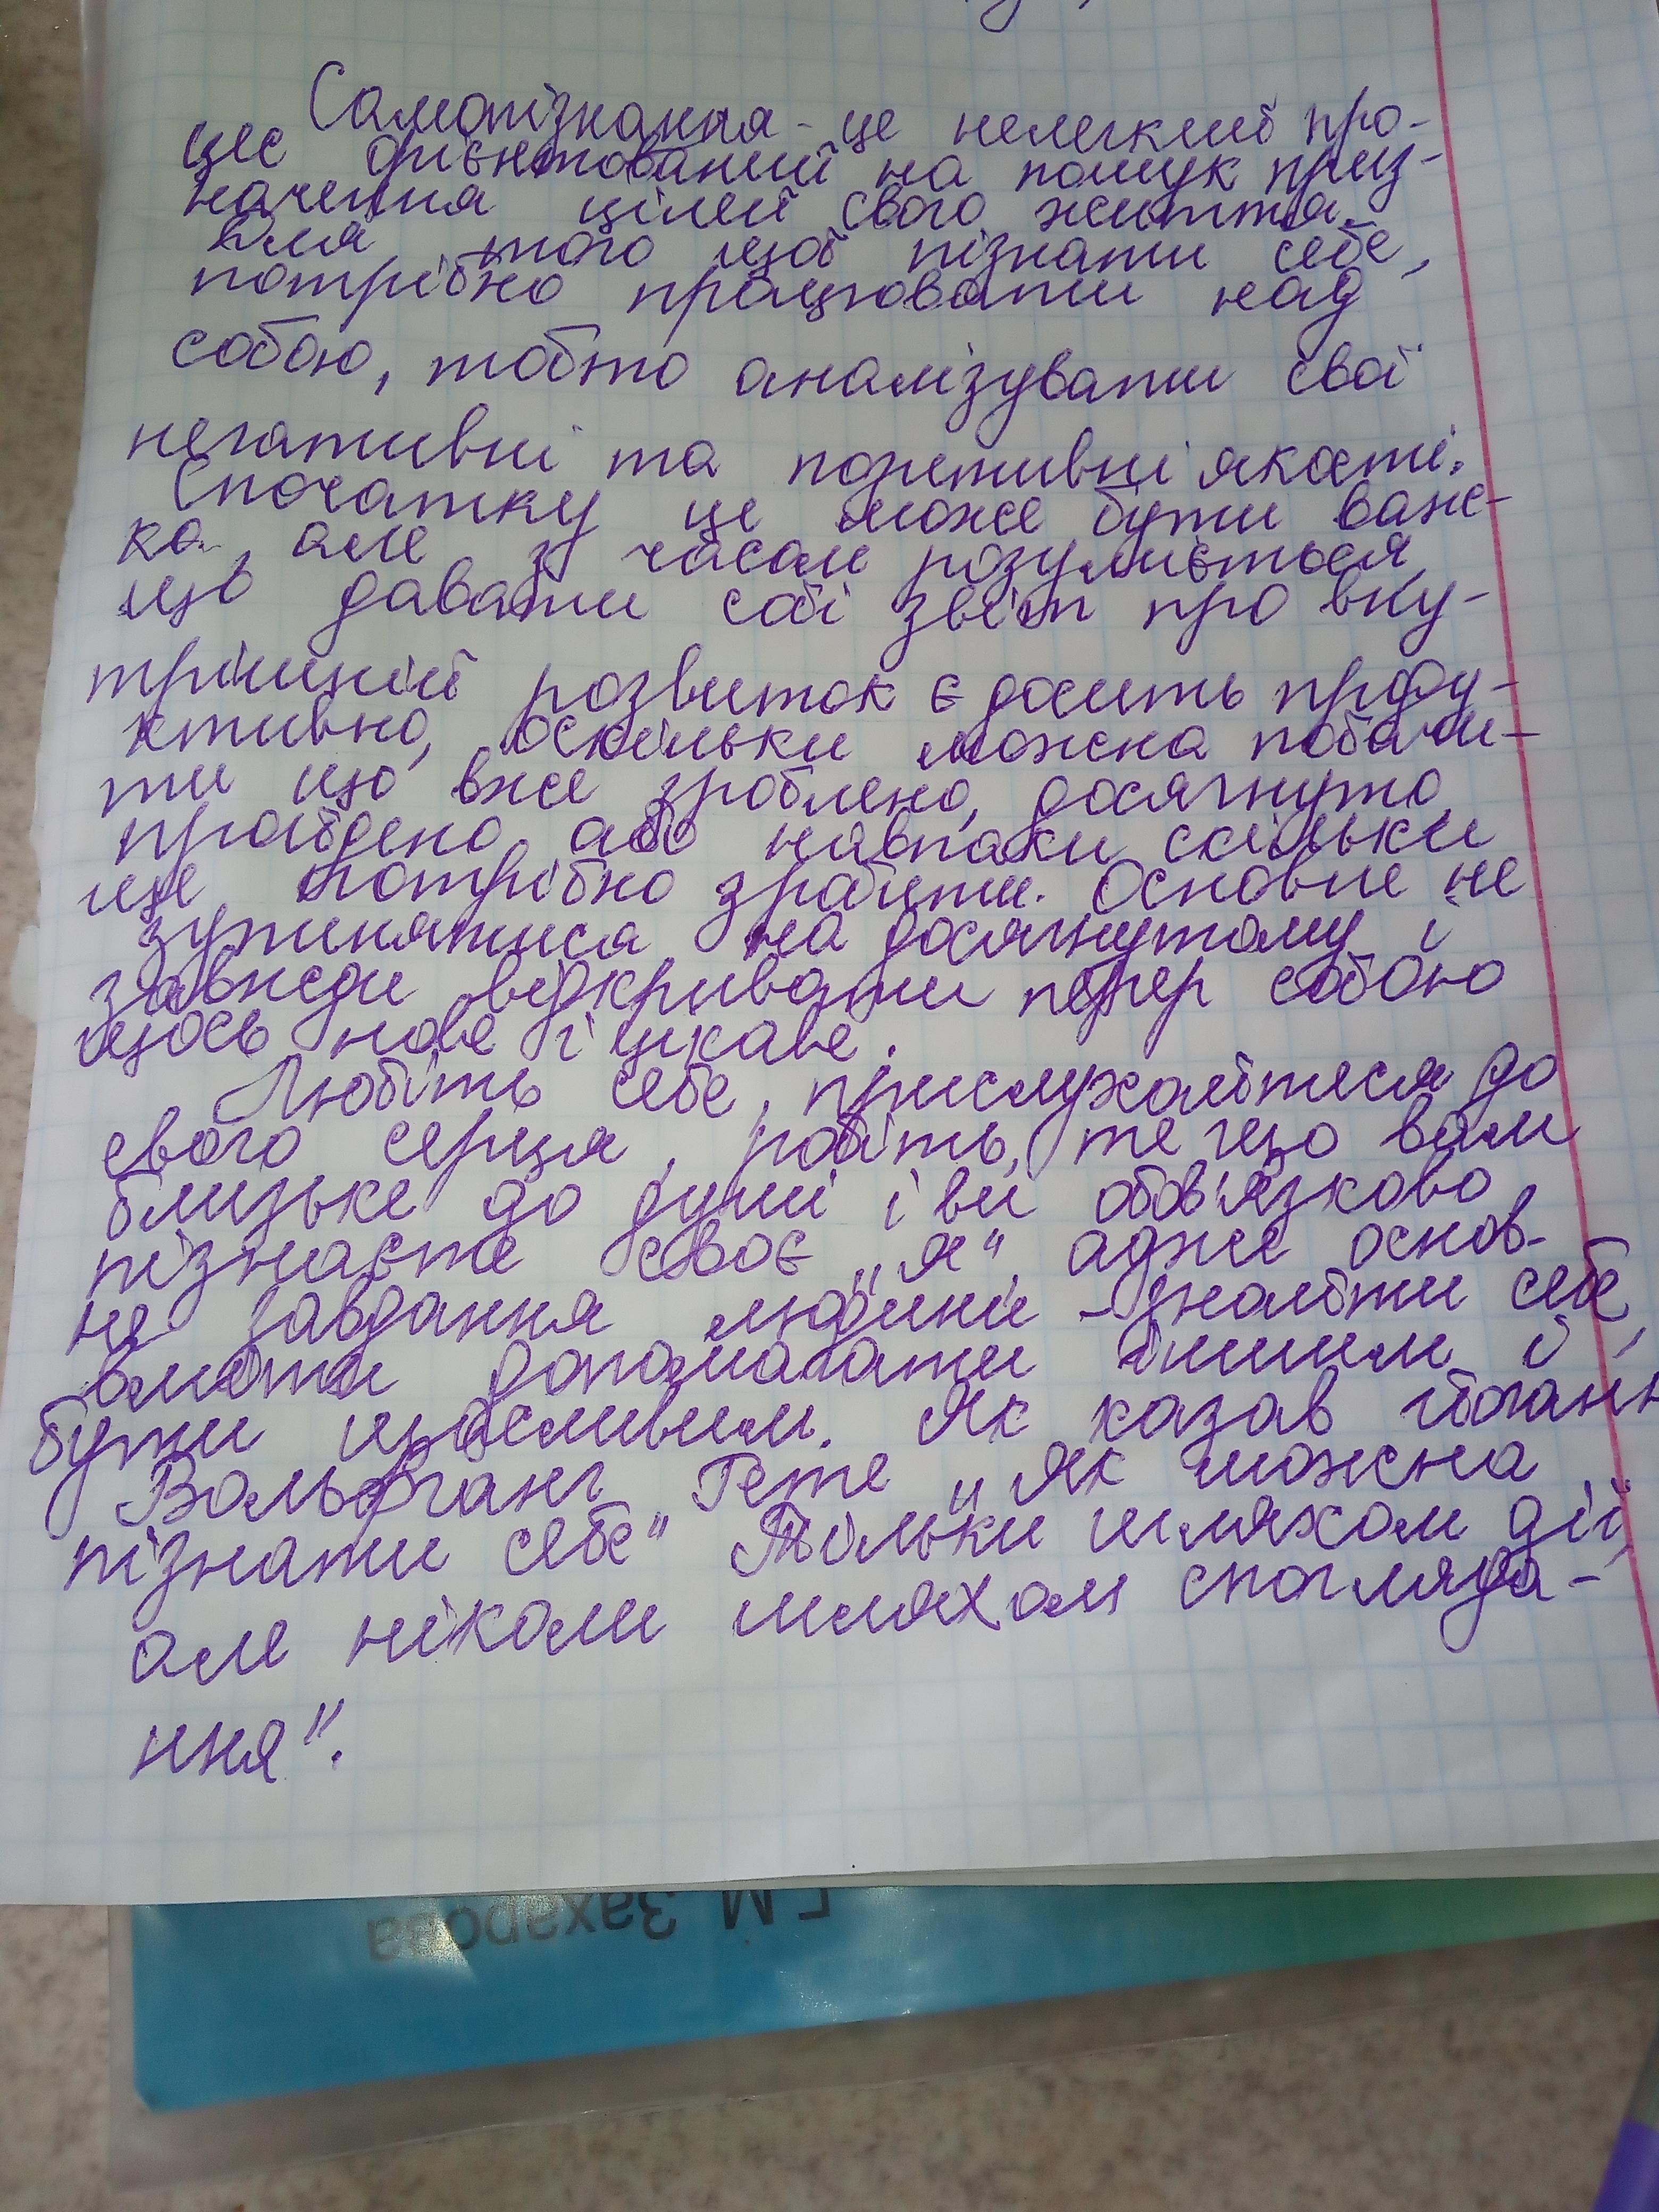 Самопізнання - це нелегкий про-
цес орієнтований на пошук приз-
начення цілей свого життя.
Для того щоб пізнати себе,
потрібно працювати над
собою, тобто аналізувати свої
негативні та позитивні якості.
Спочатку це може бути важ-
ко, але з часом розуміється
що давати собі звіт про вну-
трішній розвиток є досить проду-
ктивно, оскільки можна побачи-
ти що вже зроблено, досягнуто
пройдено або навпаки скільки
ще потрібно зробити. Основне не
зупинятися на досягнутому і
завжди відкривати перер собою
щось нове і цікаве.
Любіть себе, прислухайтеся до
свого серця, робіть, те що вам
близьке до душі і ви обов'язково
пізнаєте своє „я", адже основ-
не завдання людини - знайти себе,
вміти допомагати іншим і
бути щасливим. Як казав Йоганн
Вольфганг Гете „Як можна
пізнати себе" Тільки шляхом дії,
але ніколи шляхом спогляда-
ння".
Г М Захарова